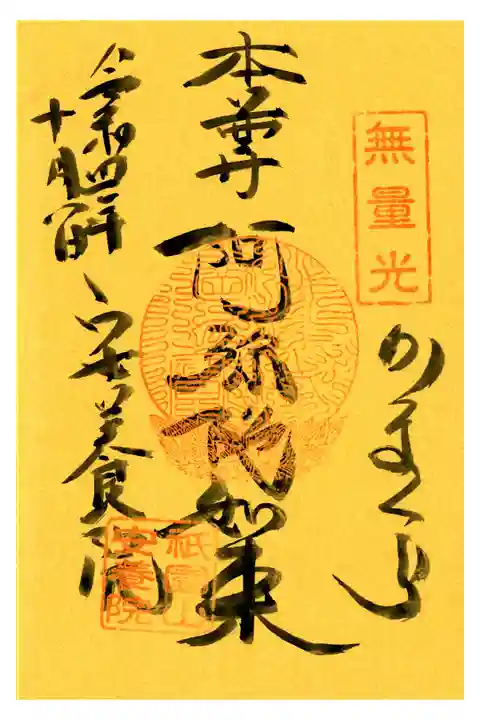 無量光
かまくら
本尊
阿弥陀如来
安養院
祇園山
安養院
令和四年
十月一日